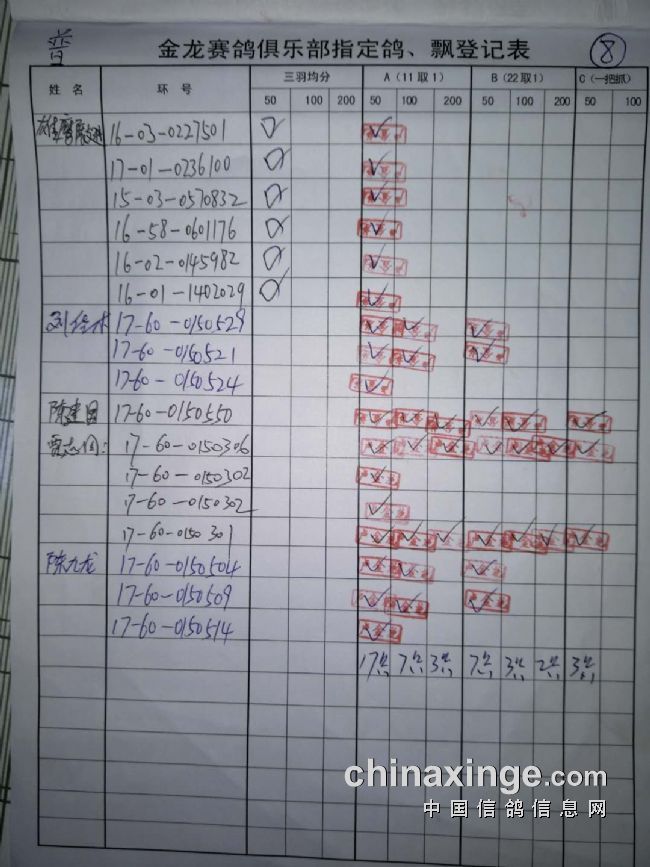 普
金龙赛鸽俱乐部指定鸽、飘登记表
8
姓 名 环 号 三羽均分 A（11取1） B（22取1） C（一把抓）
50 100 200 50 100 200 50 100 200 50 100
16-03-0227501
17-01-0236100
15-03-0570832
16-58-0601176
16-02-0145982
16-01-1402029
17-60-0150529
17-60-0150521
17-60-0150524
陈建国 17-60-0150550
17-60-0150306
17-60-0150302
17-60-0150302
17-60-0150301
陈九龙 17-60-0150504
17-60-0150509
17-60-0150514
17 7 3 7 3 2 3
chinaxinge.com
中国信鸽信息网